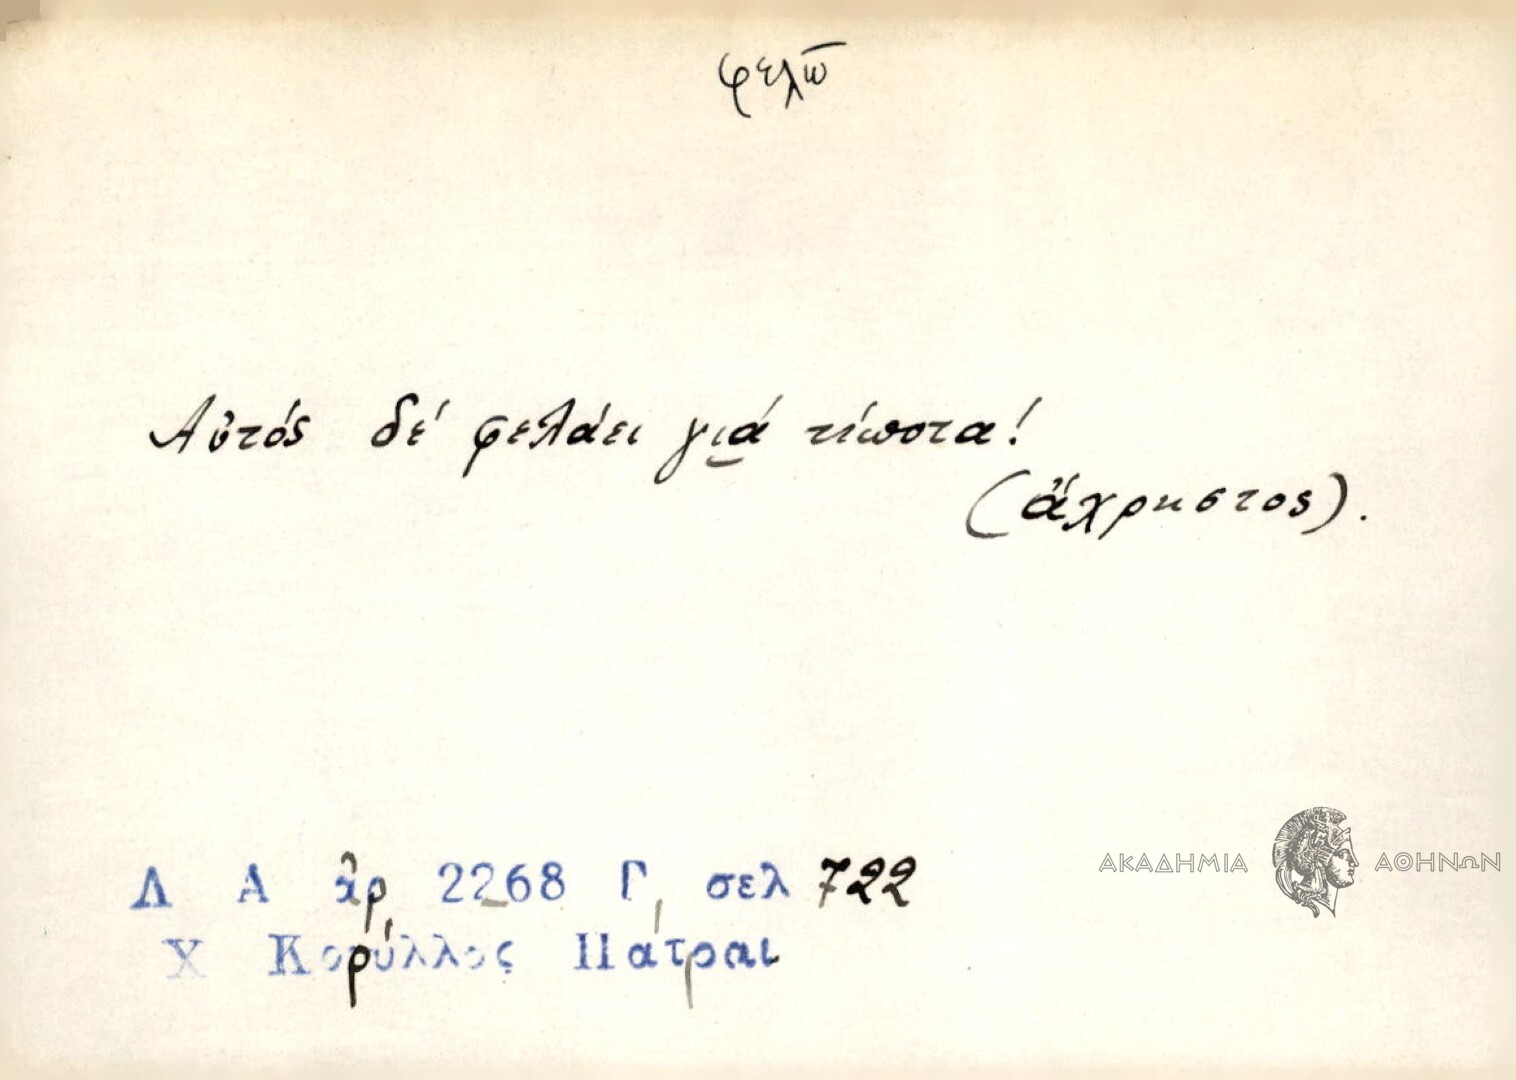 φελῶ
Αὐτός δέ φελάει γιά τίποτα!
(ἄχρηστος).
Λ Α ἀρ 2268 Γ, σελ 722
Χ Κορύλλος Πάτραι
ΑΚΑΔΗΜΙΑ ΑΘΗΝΩΝ